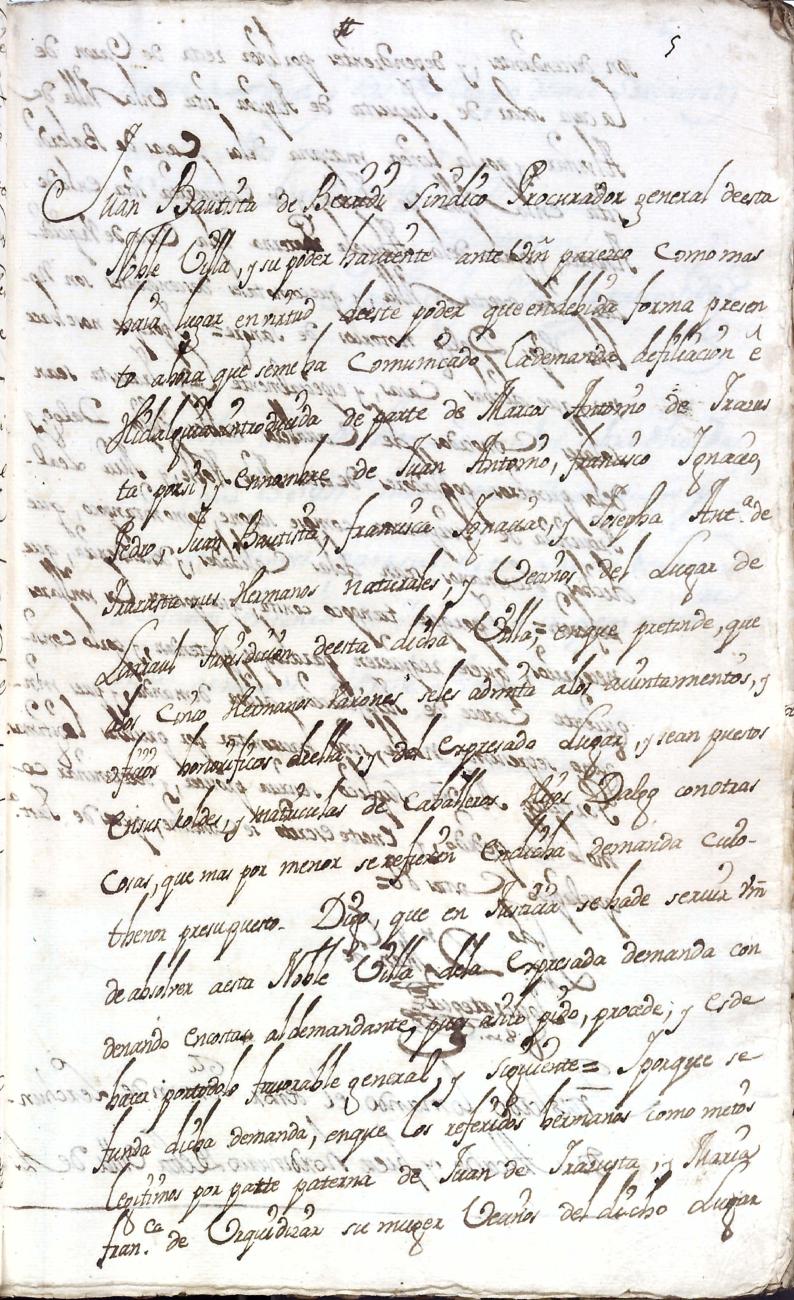 5
Juan Bautista de Beredu Sindico Procurador general deesta
Noble Villa, y su poder haviente ante Vm parezco como mas
haia lugar envirtud deeste poder que endebida forma presen
to ahora que semeha Comunicado, la demanda defiliacion é
Hidalguia introducida de parte de Marcos Antonio de Irazus
ta porsi, y ennombre de Juan Antonio, francisco Ignacio,
Pedro, Juan Bautista, francisca Ignacia, y Josepha Ant.a de
Irazusta sus Hermanos naturales, y Vecinos del Lugar de
Jurisdicion deesta dicha Villa = enque pretende, que
alos Cinco Hermanos Varones seles admita alos aiuntamientos, y
oficios honorificos deella, y del expresado Lugar, y sean puestos
ensus roldes, y matriculas de Caballeros Hijos Dalgo conotras
Cosas, que mas por menor se refieren Endicha demanda cuio-
thenor presupuesto. Digo, que en Justicia sehade servir Vm
deabsolver aesta Noble Villa dela Expresada demanda con
denando encostas aldemandante, pues asilo pido, procede, y esde
hacer portodolo favorable general, y siguiente = Iporque se
funda dicha demanda, enque los referidos hermanos como nietos
legitimos por parte paterna de Juan de Irazusta, y Maria
fran.ca de Urquidizar su muger Vecinos del dicho Lugar